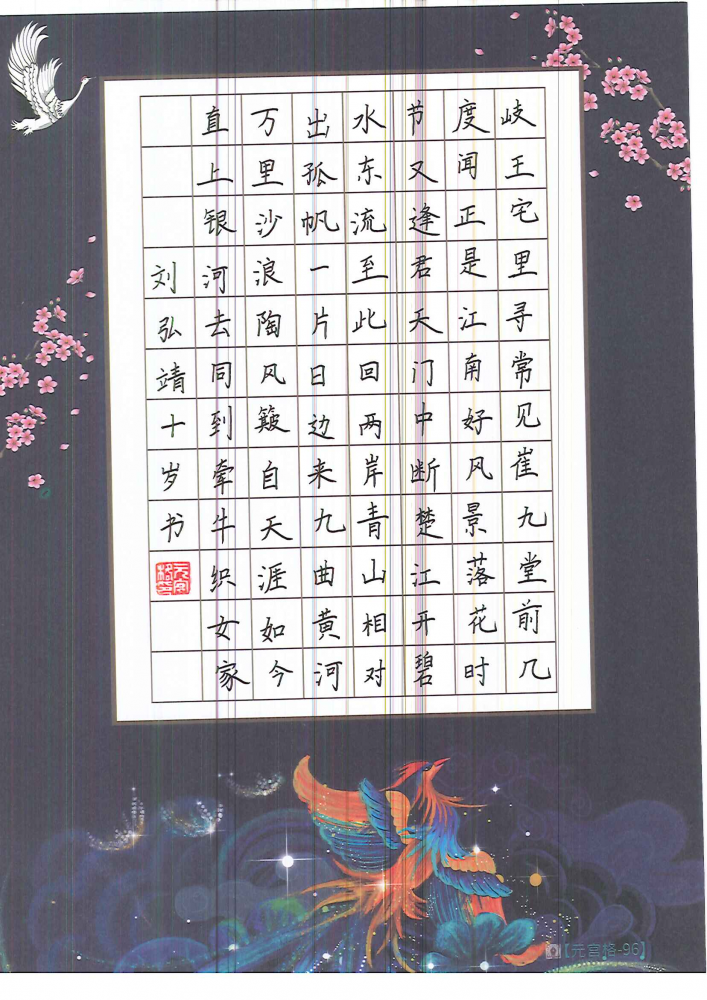 岐王宅里寻常见崔九堂前几
度闻正是江南好风景落花时
节又逢君天门中断楚江开碧
水东流至此回两岸青山相对
出孤帆一片日边来九曲黄河
万里沙浪陶风簸自天涯如今
直上银河去同到牵牛织女家
刘弘靖十岁书
【元宫格-96】